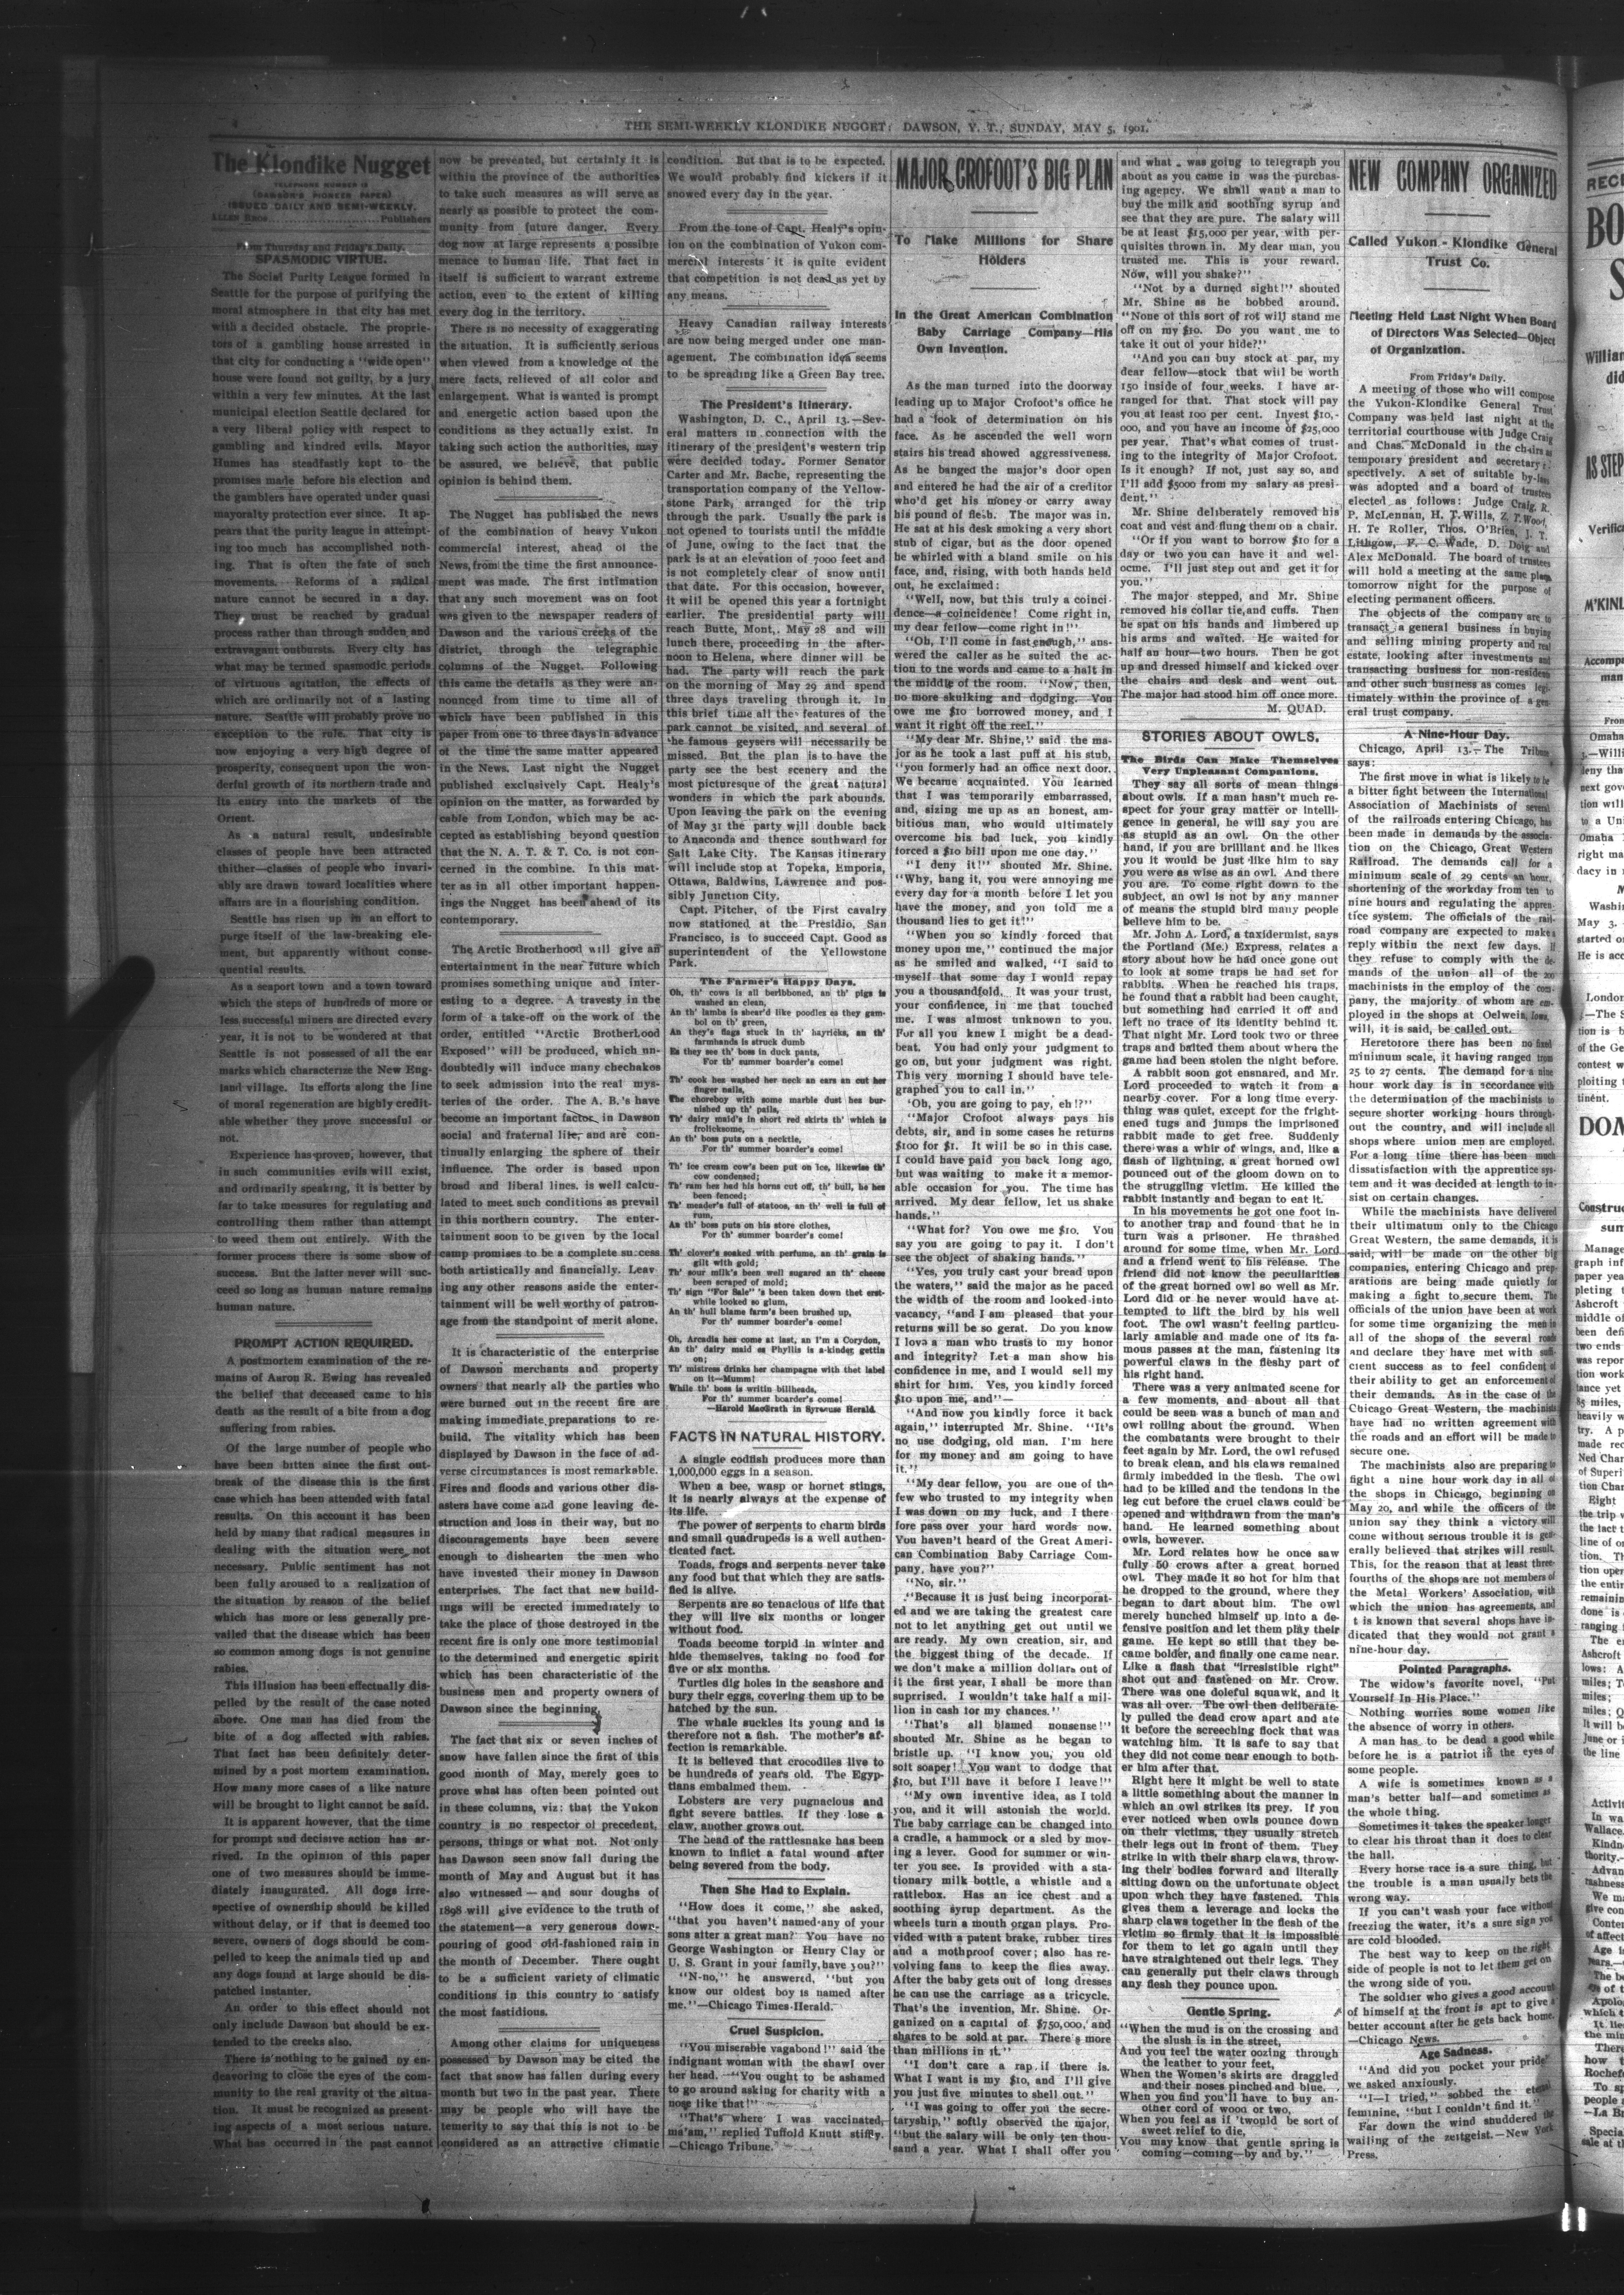 4
THE SEMI-WEEKLY KLONDIKE NUGGET: DAWSON, Y. T., SUNDAY, MAY 5, 1901.
The Klondike Nugget
TELEPHONE NUMBER 12
(DAWSON'S PIONEER PAPER)
ISSUED DAILY AND SEMI-WEEKLY.
ALLEN BROS........................Publishers
From Thursday and Friday's Daily.
SPASMODIC VIRTUE.
The Social Purity League formed in
Seattle for the purpose of purifying the
moral atmosphere in that city has met
with a decided obstacle. The proprie-
tors of a gambling house arrested in
that city for conducting a "wide open"
house were found not guilty, by a jury
within a very few minutes. At the last
municipal election Seattle declared for
a very liberal policy with respect to
gambling and kindred evils. Mayor
Humes has steadfastly kept to the
promises made before his election and
the gamblers have operated under quasi
mayoralty protection ever since. It ap-
pears that the purity league in attempt-
ing too much has accomplished noth-
ing. That is often the fate of such
movements. Reforms of a radical
nature cannot be secured in a day.
They must be reached by gradual
process rather than through sudden and
extravagant outbursts. Every city has
what may be termed spasmodic periods
of virtuous agitation, the effects of
which are ordinarily not of a lasting
nature. Seattle will probably prove no
exception to the rule. That city is
now enjoying a very high degree of
prosperity, consequent upon the won-
derful growth of its northern trade and
its entry into the markets of the
Orient.
As a natural result, undesirable
classes of people have been attracted
thither—classes of people who invari-
ably are drawn toward localities where
affairs are in a flourishing condition.
Seattle has risen up in an effort to
purge itself of the law-breaking ele-
ment, but apparently without conse-
quential results.
As a seaport town and a town toward
which the steps of hundreds of more or
less successful miners are directed every
year, it is not to be wondered at that
Seattle is not possessed of all the ear
marks which characterize the New Eng-
land village. Its efforts along the line
of moral regeneration are highly credit-
able whether they prove successful or
not.
Experience has proven, however, that
in such communities evils will exist,
and ordinarily speaking, it is better by
far to take measures for regulating and
controlling them rather than attempt
to weed them out entirely. With the
former process there is some show of
success. But the latter never will suc-
ceed so long as human nature remains
human nature.
PROMPT ACTION REQUIRED.
A postmortem examination of the re-
mains of Auron R. Ewing has revealed
the belief that deceased came to his
death as the result of a bite from a dog
suffering from rabies.
Of the large number of people who
have been bitten since the first out-
break of the disease this is the first
case which has been attended with fatal
results. On this account it has been
held by many that radical measures in
dealing with the situation were not
necessary. Public sentiment has not
been fully aroused to a realization of
the situation by reason of the belief
which has more or less generally pre-
vailed that the disease which has been
so common among dogs is not genuine
rabies.
This illusion has been effectually dis-
pelled by the result of the case noted
above. One man has died from the
bite of a dog affected with rabies.
That fact has been definitely deter-
mined by a post mortem examination.
How many more cases of a like nature
will be brought to light cannot be said.
It is apparent however, that the time
for prompt and decisive action has ar-
rived. In the opinion of this paper
one of two measures should be imme-
diately inaugurated. All dogs irre-
spective of ownership should be killed
without delay, or if that is deemed too
severe, owners of dogs should be com-
pelled to keep the animals tied up and
any dogs found at large should be dis-
patched instanter.
An order to this effect should not
only include Dawson but should be ex-
tended to the creeks also.
There is nothing to be gained by en-
deavoring to close the eyes of the com-
munity to the real gravity of the situa-
tion. It must be recognized as present-
ing aspects of a most serious nature.
What has occurred in the past cannot
now be prevented, but certainly it is
within the province of the authorities
to take such measures as will serve as
nearly as possible to protect the com-
munity from future danger. Every
dog now at large represents a possible
menace to human life. That fact in
itself is sufficient to warrant extreme
action, even to the extent of killing
every dog in the territory.
There is no necessity of exaggerating
the situation. It is sufficiently serious
when viewed from a knowledge of the
mere facts, relieved of all color and
enlargement. What is wanted is prompt
and energetic action based upon the
conditions as they actually exist. In
taking such action the authorities, may
be assured, we believe, that public
opinion is behind them.
The Nugget has published the news
of the combination of heavy Yukon
commercial interest, ahead of the
News, from the time the first announce-
ment was made. The first intimation
that any such movement was on foot
was given to the newspaper readers of
Dawson and the various creeks of the
district, through the telegraphic
columns of the Nugget. Following
this came the details as they were an-
nounced from time to time all of
which have been published in this
paper from one to three days in advance
of the time the same matter appeared
in the News. Last night the Nugget
published exclusively Capt. Healy's
opinion on the matter, as forwarded by
cable from London, which may be ac-
cepted as establishing beyond question
that the N. A. T. & T. Co. is not con-
cerned in the combine. In this mat-
ter as in all other important happen-
ings the Nugget has been ahead of its
contemporary.
The Arctic Brotherhood will give an
entertainment in the near future which
promises something unique and inter-
esting to a degree. A travesty in the
form of a take-off on the work of the
order, entitled "Arctic Brotherhood
Exposed" will be produced, which un-
doubtedly will induce many chechakos
to seek admission into the real mys-
teries of the order. The A. B.'s have
become an important factor in Dawson
social and fraternal life, and are con-
tinually enlarging the sphere of their
influence. The order is based upon
broad and liberal lines, is well calcu-
lated to meet such conditions as prevail
in this northern country. The enter-
tainment soon to be given by the local
camp promises to be a complete success
both artistically and financially. Leav-
ing any other reasons aside the enter-
tainment will be well worthy of patron-
age from the standpoint of merit alone.
It is characteristic of the enterprise
of Dawson merchants and property
owners that nearly all the parties who
were burned out in the recent fire are
making immediate preparations to re-
build. The vitality which has been
displayed by Dawson in the face of ad-
verse circumstances is most remarkable.
Fires and floods and various other dis-
asters have come and gone leaving de-
struction and loss in their way, but no
discouragements have been severe
enough to dishearten the men who
have invested their money in Dawson
enterprises. The fact that new build-
ings will be erected immediately to
take the place of those destroyed in the
recent fire is only one more testimonial
to the determined and energetic spirit
which has been characteristic of the
business men and property owners of
Dawson since the beginning.
The fact that six or seven inches of
snow have fallen since the first of this
good month of May, merely goes to
prove what has often been pointed out
in these columns, viz: that the Yukon
country is no respector of precedent,
persons, things or what not. Not only
has Dawson seen snow fall during the
month of May and August but it has
also witnessed — and sour doughs of
1898 will give evidence to the truth of
the statement—a very generous down-
pouring of good old-fashioned rain in
the month of December. There ought
to be a sufficient variety of climatic
conditions in this country to satisfy
the most fastidious.
Among other claims for uniqueness
possessed by Dawson may be cited the
fact that snow has fallen during every
month but two in the past year. There
may be people who will have the
temerity to say that this is not to be
considered as an attractive climatic
condition. But that is to be expected.
We would probably find kickers if it
snowed every day in the year.
From the tone of Capt. Healy's opin-
ion on the combination of Yukon com-
mercial interests it is quite evident
that competition is not dead as yet by
any means.
Heavy Canadian railway interests
are now being merged under one man-
agement. The combination idea seems
to be spreading like a Green Bay tree.
The President's Itinerary.
Washington, D. C., April 13.—Sev-
eral matters in connection with the
itinerary of the president's western trip
were decided today. Former Senator
Carter and Mr. Bache, representing the
transportation company of the Yellow-
stone Park, arranged for the trip
through the park. Usually the park is
not opened to tourists until the middle
of June, owing to the fact that the
park is at an elevation of 7000 feet and
is not completely clear of snow until
that date. For this occasion, however,
it will be opened this year a fortnight
earlier. The presidential party will
reach Butte, Mont,. May 28 and will
lunch there, proceeding in the after-
noon to Helena, where dinner will be
had. The party will reach the park
on the morning of May 29 and spend
three days traveling through it. In
this brief time all the features of the
park cannot be visited, and several of
the famous geysers will necessarily be
missed. But the plan is to have the
party see the best scenery and the
most picturesque of the great natural
wonders in which the park abounds.
Upon leaving the park on the evening
of May 31 the party will double back
to Anaconda and thence southward for
Salt Lake City. The Kansas itinerary
will include stop at Topeka, Emporia,
Ottawa, Baldwins, Lawrence and pos-
sibly Junction City.
Capt. Pitcher, of the First cavalry
now stationed at the Presidio, San
Francisco, is to succeed Capt. Good as
superintendent of the Yellowstone
Park.
The Farmer's Happy Days.
Oh, th' cows is all beribboned, an th' pigs is
washed an clean,
An th' lambs is shear'd like poodles as they gam-
bol on th' green,
An they's flags stuck in th' hayricks, an th'
farmhands is struck dumb
Es they see th' boss in duck pants,
For th' summer boarder's come!
Th' cook hes washed her neck an ears an cut her
finger nails,
The choreboy with some marble dust hes bur-
nished up th' pails,
Th' dairy maid's in short red skirts th' which is
frolicksome,
An th' boss puts on a necktie,
For th' summer boarder's come!
Th' ice cream cow's been put on ice, likewise th'
cow condensed;
Th' ram hes had his horns cut off, th' bull, he hes
been fenced;
Th' meader's full of statoos, an th' well is full of
rum,
An th' boss puts on his store clothes,
For th' summer boarder's come!
Th' clover's soaked with perfume, an th' grain is
gilt with gold;
Th' sour milk's been well sugared an th' cheese
been scraped of mold;
Th' sign "For Sale" 's been taken down thet erst-
while looked so glum,
An th' hull blame farm's been brushed up,
For th' summer boarder's come!
Oh, Arcadia hes come at last, an I'm a Corydon,
An th' dairy maid es Phyllis is a-kinder gettin
on;
Th' mistress drinks her champagne with thet label
on it—Mumm!
While th' boss is writin billheads,
For th' summer boarder's come!
—Harold MacGrath in Syracuse Herald.
FACTS IN NATURAL HISTORY.
A single codfish produces more than
1,000,000 eggs in a season.
When a bee, wasp or hornet stings,
it is nearly always at the expense of
its life.
The power of serpents to charm birds
and small quadrupeds is a well authen-
ticated fact.
Toads, frogs and serpents never take
any food but that which they are satis-
fied is alive.
Serpents are so tenacious of life that
they will live six months or longer
without food.
Toads become torpid in winter and
hide themselves, taking no food for
five or six months.
Turtles dig holes in the seashore and
bury their eggs, covering them up to be
hatched by the sun.
The whale suckles its young and is
therefore not a fish. The mother's af-
fection is remarkable.
It is believed that crocodiles live to
be hundreds of years old. The Egyp-
tians embalmed them.
Lobsters are very pugnacious and
fight severe battles. If they lose a
claw, another grows out.
The head of the rattlesnake has been
known to inflict a fatal wound after
being severed from the body.
Then She Had to Explain.
"How does it come," she asked,
"that you haven't named any of your
sons after a great man? You have no
George Washington or Henry Clay or
U. S. Grant in your family, have you?"
"N-no," he answered, "but you
know our oldest boy is named after
me."—Chicago Times-Herald.
Cruel Suspicion.
"You miserable vagabond!" said the
indignant woman with the shawl over
her head. "You ought to be ashamed
to go around asking for charity with a
nose like that!"
"That's where I was vaccinated,
ma'am," replied Tuffold Knutt stiffly.
—Chicago Tribune.
MAJOR CROFOOT'S BIG PLAN
To Make Millions for Share
Holders
In the Great American Combination
Baby Carriage Company—His
Own Invention.
As the man turned into the doorway
leading up to Major Crofoot's office he
had a look of determination on his
face. As he ascended the well worn
stairs his tread showed aggressiveness.
As he banged the major's door open
and entered he had the air of a creditor
who'd get his money or carry away
his pound of flesh. The major was in.
He sat at his desk smoking a very short
stub of cigar, but as the door opened
he whirled with a bland smile on his
face, and, rising, with both hands held
out, he exclaimed:
"Well, now, but this truly a coinci-
dence—a coincidence! Come right in,
my dear fellow—come right in!"
"Oh, I'll come in fast enough," ans-
wered the caller as he suited the ac-
tion to the words and came to a halt in
the middle of the room. "Now, then,
no more skulking and dodging. You
owe me $10 borrowed money, and I
want it right off the reel."
"My dear Mr. Shine," said the ma-
jor as he took a last puff at his stub,
"you formerly had an office next door.
We became acquainted. You learned
that I was temporarily embarrassed,
and, sizing me up as an honest, am-
bitious man, who would ultimately
overcome his bad luck, you kindly
forced a $10 bill upon me one day."
"I deny it!" shouted Mr. Shine.
"Why, hang it, you were annoying me
every day for a month before I let you
have the money, and you told me a
thousand lies to get it!"
"When you so kindly forced that
money upon me," continued the major
as he smiled and walked, "I said to
myself that some day I would repay
you a thousandfold. It was your trust,
your confidence, in me that touched
me. I was almost unknown to you.
For all you knew I might be a dead-
beat. You had only your judgment to
go on, but your judgment was right.
This very morning I should have tele-
graphed you to call in."
'Oh, you are going to pay, eh!?"
"Major Crofoot always pays his
debts, sir, and in some cases he returns
$100 for $1. It will be so in this case.
I could have paid you back long ago,
but was waiting to make it a memor-
able occasion for you. The time has
arrived. My dear fellow, let us shake
hands."
"What for? You owe me $10. You
say you are going to pay it. I don't
see the object of shaking hands."
"Yes, you truly cast your bread upon
the waters," said the major as he paced
the width of the room and looked into
vacancy, "and I am pleased that your
returns will be so gerat. Do you know
I love a man who trusts to my honor
and integrity? Let a man show his
confidence in me, and I would sell my
shirt for him. Yes, you kindly forced
$10 upon me, and"—
"And now you kindly force it back
again," interrupted Mr. Shine. "It's
no use dodging, old man. I'm here
for my money and am going to have
it."
"My dear fellow, you are one of the
few who trusted to my integrity when
I was down on my luck, and I there
fore pass over your hard words now.
You haven't heard of the Great Ameri-
can Combination Baby Carriage Com-
pany, have you?"
"No, sir."
"Because it is just being incorporat-
ed and we are taking the greatest care
not to let anything get out until we
are ready. My own creation, sir, and
the biggest thing of the decade. If
we don't make a million dollars out of
it the first year, I shall be more than
suprrised. I wouldn't take half a mil-
lion in cash for my chances."
"That's all blamed nonsense!"
shouted Mr. Shine as he began to
bristle up. "I know you, you old
soft soaper! You want to dodge that
$10, but I'll have it before I leave!"
"My own inventive idea, as I told
you, and it will astonish the world.
The baby carriage can be changed into
a cradle, a hammock or a sled by mov-
ing a lever. Good for summer or win-
ter you see. Is provided with a sta-
tionary milk bottle, a whistle and a
rattlebox. Has an ice chest and a
soothing syrup department. As the
wheels turn a mouth organ plays. Pro-
vided with a patent brake, rubber tires
and a mothproof cover; also has re-
volving fans to keep the flies away.
After the baby gets out of long dresses
he can use the carriage as a tricycle.
That's the invention, Mr. Shine. Or-
ganized on a capital of $750,000, and
shares to be sold at par. There's more
than millions in it."
"I don't care a rap if there is.
What I want is my $10, and I'll give
you just five minutes to shell out."
"I was going to offer you the secre-
taryship," softly observed the major,
"but the salary will be only ten thou-
sand a year. What I shall offer you
and what was going to telegraph you
about as you came in was the purchas-
ing agency. We shall want a man to
buy the milk and soothing syrup and
see that they are pure. The salary will
be at least $15,000 per year, with per-
quisites thrown in. My dear man, you
trusted me. This is your reward.
Now, will you shake?"
"Not by a durned sight!" shouted
Mr. Shine as he bobbed around.
"None of this sort of rot will stand me
off on my $10. Do you want me to
take it out of your hide?"
"And you can buy stock at par, my
dear fellow—stock that will be worth
150 inside of four weeks. I have ar-
ranged for that. That stock will pay
you at least 100 per cent. Invest $10,-
000, and you have an income of $25,000
per year. That's what comes of trust-
ing to the integrity of Major Crofoot.
Is it enough? If not, just say so, and
I'll add $5000 from my salary as presi-
dent."
Mr. Shine deliberately removed his
coat and vest and flung them on a chair.
"Or if you want to borrow $10 for a
day or two you can have it and wel-
ocme. I'll just step out and get it for
you."
The major stepped, and Mr. Shine
removed his collar tie, and cuffs. Then
he spat on his hands and limbered up
his arms and waited. He waited for
half an hour—two hours. Then he got
up and dressed himself and kicked over
the chairs and desk and went out.
The major had stood him off once more.
M. QUAD.
STORIES ABOUT OWLS.
The Birds Can Make Themselves
Very Unpleasant Companions.
They say all sorts of mean things
about owls. If a man hasn't much re-
spect for your gray matter or intelli-
gence in general, he will say you are
as stupid as an owl. On the other
hand, if you are brilliant and he likes
you it would be just like him to say
you were as wise as an owl. And there
you are. To come right down to the
subject, an owl is not by any manner
of means the stupid bird many people
believe him to be.
Mr. John A. Lord, a taxidermist, says
the Portland (Me.) Express, relates a
story about how he had once gone out
to look at some traps he had set for
rabbits. When he reached his traps,
he found that a rabbit had been caught,
but something had carried it off and
left no trace of its identity behind it.
That night Mr. Lord took two or three
traps and baited them about where the
game had been stolen the night before.
A rabbit soon got ensnared, and Mr.
Lord proceeded to watch it from a
nearby cover. For a long time every-
thing was quiet, except for the fright-
ened tugs and jumps the imprisoned
rabbit made to get free. Suddenly
there was a whir of wings, and, like a
flash of lightning, a great horned owl
pounced out of the gloom down on to
the struggling victim. He killed the
rabbit instantly and began to eat it.
In his movements he got one foot in-
to another trap and found that he in
turn was a prisoner. He thrashed
around for some time, when Mr. Lord
and a friend went to his release. The
friend did not know the peculiarities
of the great horned owl so well as Mr.
Lord did or he never would have at-
tempted to lift the bird by his well
foot. The owl wasn't feeling particu-
larly amiable and made one of its fa-
mous passes at the man, fastening its
powerful claws in the fleshy part of
his right hand.
There was a very animated scene for
a few moments, and about all that
could be seen was a bunch of man and
owl rolling about the ground. When
the combatants were brought to their
feet again by Mr. Lord, the owl refused
to break clean, and his claws remained
firmly imbedded in the flesh. The owl
had to be killed and the tendons in the
leg cut before the cruel claws could be
opened and withdrawn from the man's
hand. He learned something about
owls, however.
Mr. Lord relates how he once saw
fully 50 crows after a great horned
owl. They made it so hot for him that
he dropped to the ground, where they
began to dart about him. The owl
merely hunched himself up into a de-
fensive position and let them play their
game. He kept so still that they be-
came bolder, and finally one came near.
Like a flash that "irresistible right"
shot out and fastened on Mr. Crow.
There was one doleful squawk, and it
was all over. The owl then deliberate-
ly pulled the dead crow apart and ate
it before the screeching flock that was
watching him. It is safe to say that
they did not come near enough to both-
er him after that.
Right here it might be well to state
a little something about the manner in
which an owl strikes its prey. If you
ever noticed when owls pounce down
on their victims, they usually stretch
their legs out in front of them. They
strike in with their sharp claws, throw-
ing their bodies forward and literally
sitting down on the unfortunate object
upon which they have fastened. This
gives them a leverage and locks the
sharp claws together in the flesh of the
victim so firmly that it is impossible
for them to let go again until they
have straightened out their legs. They
can generally put their claws through
any flesh they pounce upon.
Gentle Spring.
"When the mud is on the crossing and
the slush is in the street,
And you feel the water oozing through
the leather to your feet,
When the Women's skirts are draggled
and their noses pinched and blue,
When you find you'll have to buy an-
other cord of wood or two,
When you feel as if 'twould be sort of
sweet relief to die,
You may know that gentle spring is
coming—coming—by and by."
NEW COMPANY ORGANIZED
Called Yukon-Klondike General
Trust Co.
Meeting Held Last Night When Board
of Directors Was Selected—Object
of Organization.
From Friday's Daily.
A meeting of those who will compose
the Yukon-Klondike General Trust
Company was held last night at the
territorial courthouse with Judge Craig
and Chas. McDonald in the chairs as
temporary president and secretary re-
spectively. A set of suitable by-laws
was adopted and a board of trustees
elected as follows: Judge Craig, R.
P. McLennan, H. T. Wills, Z. T. Wood,
H. Te Roller, Thos. O'Brien, J. T.
Lithgow, F. C. Wade, D. Doig and
Alex McDonald. The board of trustees
will hold a meeting at the same place
tomorrow night for the purpose of
electing permanent officers.
The objects of the company are to
transact a general business in buying
and selling mining property and real
estate, looking after investments and
transacting business for non-residents
and other such business as comes legi-
timately within the province of a gen-
eral trust company.
A Nine-Hour Day.
Chicago, April 13.—The Tribune
says:
The first move in what is likely to be
a bitter fight between the International
Association of Machinists of several
of the railroads entering Chicago, has
been made in demands by the associa-
tion on the Chicago, Great Western
Railroad. The demands call for a
minimum scale of 29 cents an hour,
shortening of the workday from ten to
nine hours and regulating the appren-
tice system. The officials of the rail-
road company are expected to make a
reply within the next few days. If
they refuse to comply with the de-
mands of the union all of the 200
machinists in the employ of the com-
pany, the majority of whom are em-
ployed in the shops at Oelwein, Iowa,
will, it is said, be called out.
Heretofore there has been no fixed
minimum scale, it having ranged from
25 to 27 cents. The demand for a nine
hour work day is in accordance with
the determination of the machinists to
secure shorter working hours through-
out the country, and will include all
shops where union men are employed.
For a long time there has been much
dissatisfaction with the apprentice sys-
tem and it was decided at length to in-
sist on certain changes.
While the machinists have delivered
their ultimatum only to the Chicago
Great Western, the same demands, it is
said, will be made on the other big
companies, entering Chicago and prep-
arations are being made quietly for
making a fight to secure them. The
officials of the union have been at work
for some time organizing the men in
all of the shops of the several roads
and declare they have met with suffi-
cient success as to feel confident of
their ability to get an enforcement of
their demands. As in the case of the
Chicago Great Western, the machinists
have had no written agreement with
the roads and an effort will be made to
secure one.
The machinists also are preparing to
fight a nine hour work day in all of
the shops in Chicago, beginning on
May 20, and while the officers of the
union say they think a victory will
come without serious trouble it is gen-
erally believed that strikes will result.
This, for the reason that at least three-
fourths of the shops are not members of
the Metal Workers' Association, with
which the union has agreements, and
t is known that several shops have in-
dicated that they would not grant a
nine-hour day.
Pointed Paragraphs.
The widow's favorite novel, "Put
Yourself In His Place."
Nothing worries some women like
the absence of worry in others.
A man has to be dead a good while
before he is a patriot in the eyes of
some people.
A wife is sometimes known as a
man's better half—and sometimes as
the whole thing.
Sometimes it takes the speaker longer
to clear his throat than it does to clear
the hall.
Every horse race is a sure thing, but
the trouble is a man usually bets the
wrong way.
If you can't wash your face without
freezing the water, it's a sure sign you
are cold blooded.
The best way to keep on the right
side of people is not to let them get on
the wrong side of you.
The soldier who gives a good account
of himself at the front is apt to give a
better account after he gets back home.
—Chicago News.
Age Sadness.
"And did you pocket your pride"
we asked anxiously.
"I—I tried," sobbed the eternal
feminine, "but I couldn't find it."
Far down the wind shuddered the
wailing of the zeitgeist.—New York
Press.